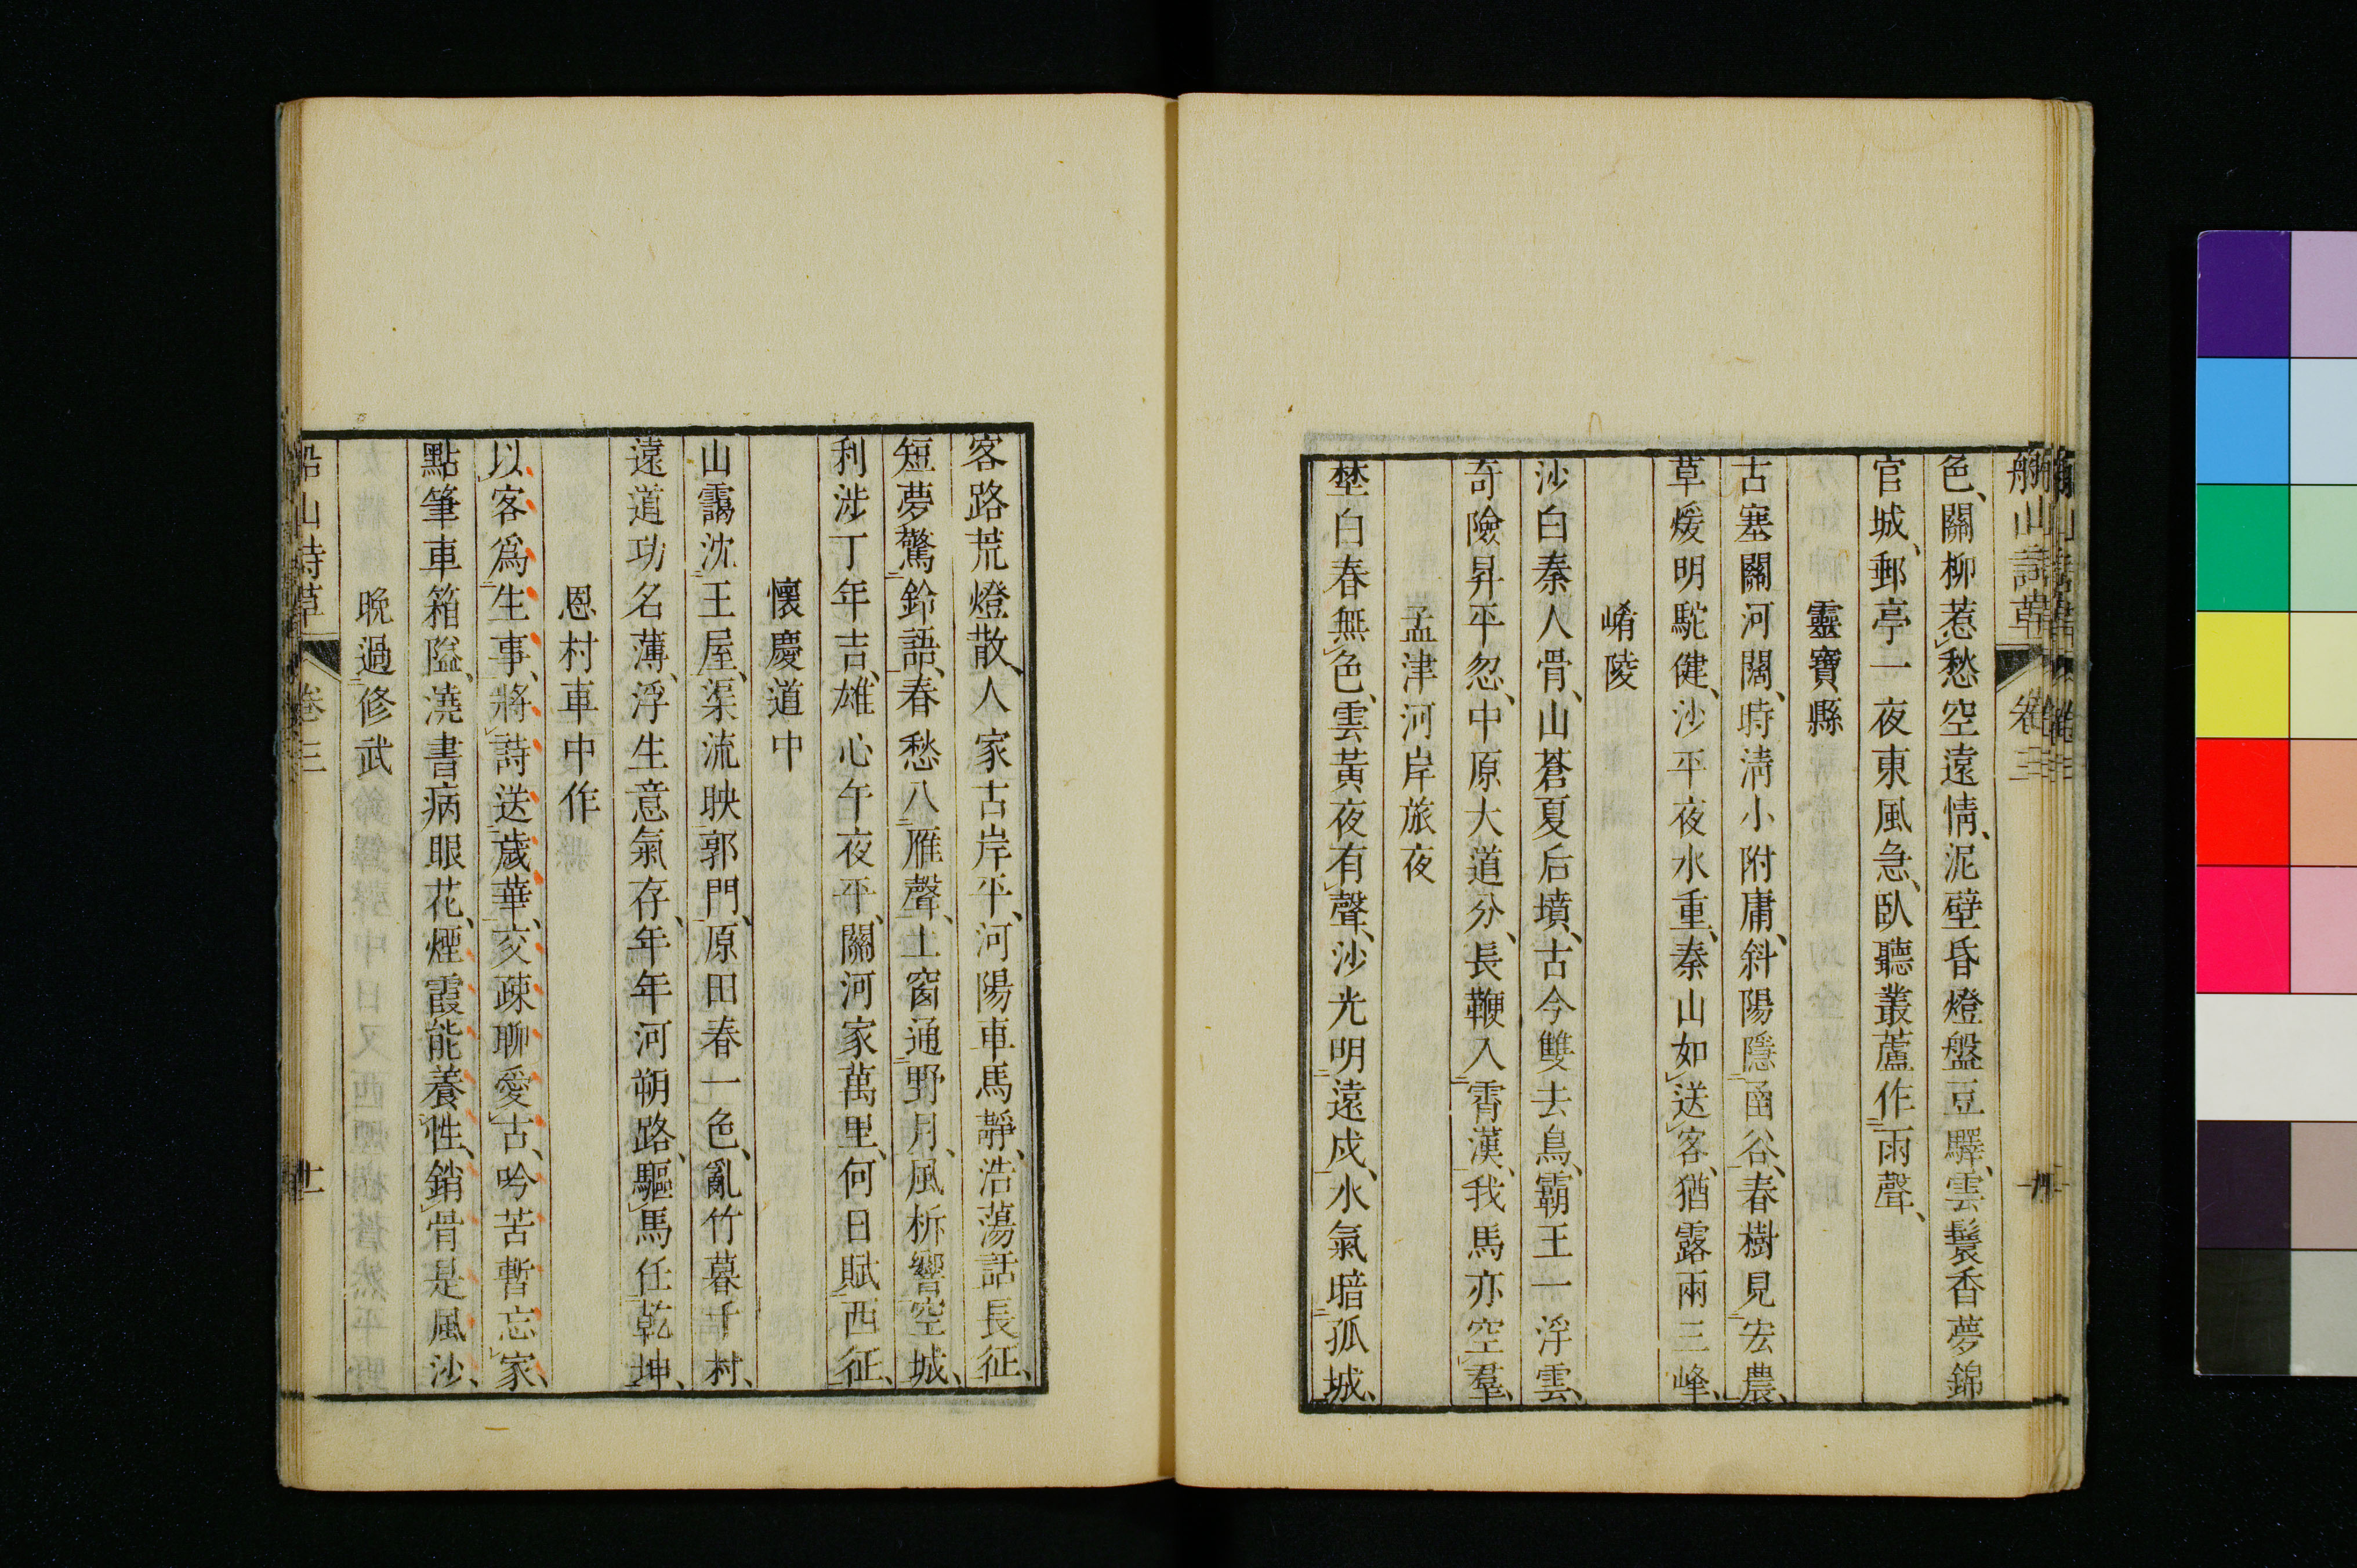 船山詩草 卷三
色、關柳惹愁空遠情、泥壁昏燈盤豆驛、雲鬟香夢錦
官城、郵亭一夜東風急、臥聽叢蘆作雨聲、
靈寶縣
古塞關河闊、時清小附庸、斜陽隱函谷、春樹見宏農、
草煖明駝健、沙平夜水重、秦山如送客、猶露兩三峰、
崤陵
沙白秦人骨、山蒼夏后墳、古今雙去鳥、霸王一浮雲、
奇險昇平忽、中原大道分、長鞭入霄漢、我馬亦空羣、
孟津河岸旅夜
埜白春無色、雲黃夜有聲、沙光明遠戍、水氣暗孤城、
客路荒燈散、人家古岸平、河陽車馬靜、浩蕩話長征、
短夢驚鈴語、春愁八雁聲、土窗通野月、風柝響空城、
利涉丁年吉、雄心午夜平、關河家萬里、何日賦西征、
懷慶道中
山靄沈王屋、渠流映郭門、原田春一色、亂竹暮千村、
遠道功名薄、浮生意氣存、年年河朔路、驅馬任乾坤、
恩村車中作
以客爲生事、將詩送歲華、交疎聊愛古、吟苦暫忘家、
點筆車箱隘、澆書病眼花、煙霞能養性、銷骨是風沙、
晚過修武
船山詩草 卷三 十一